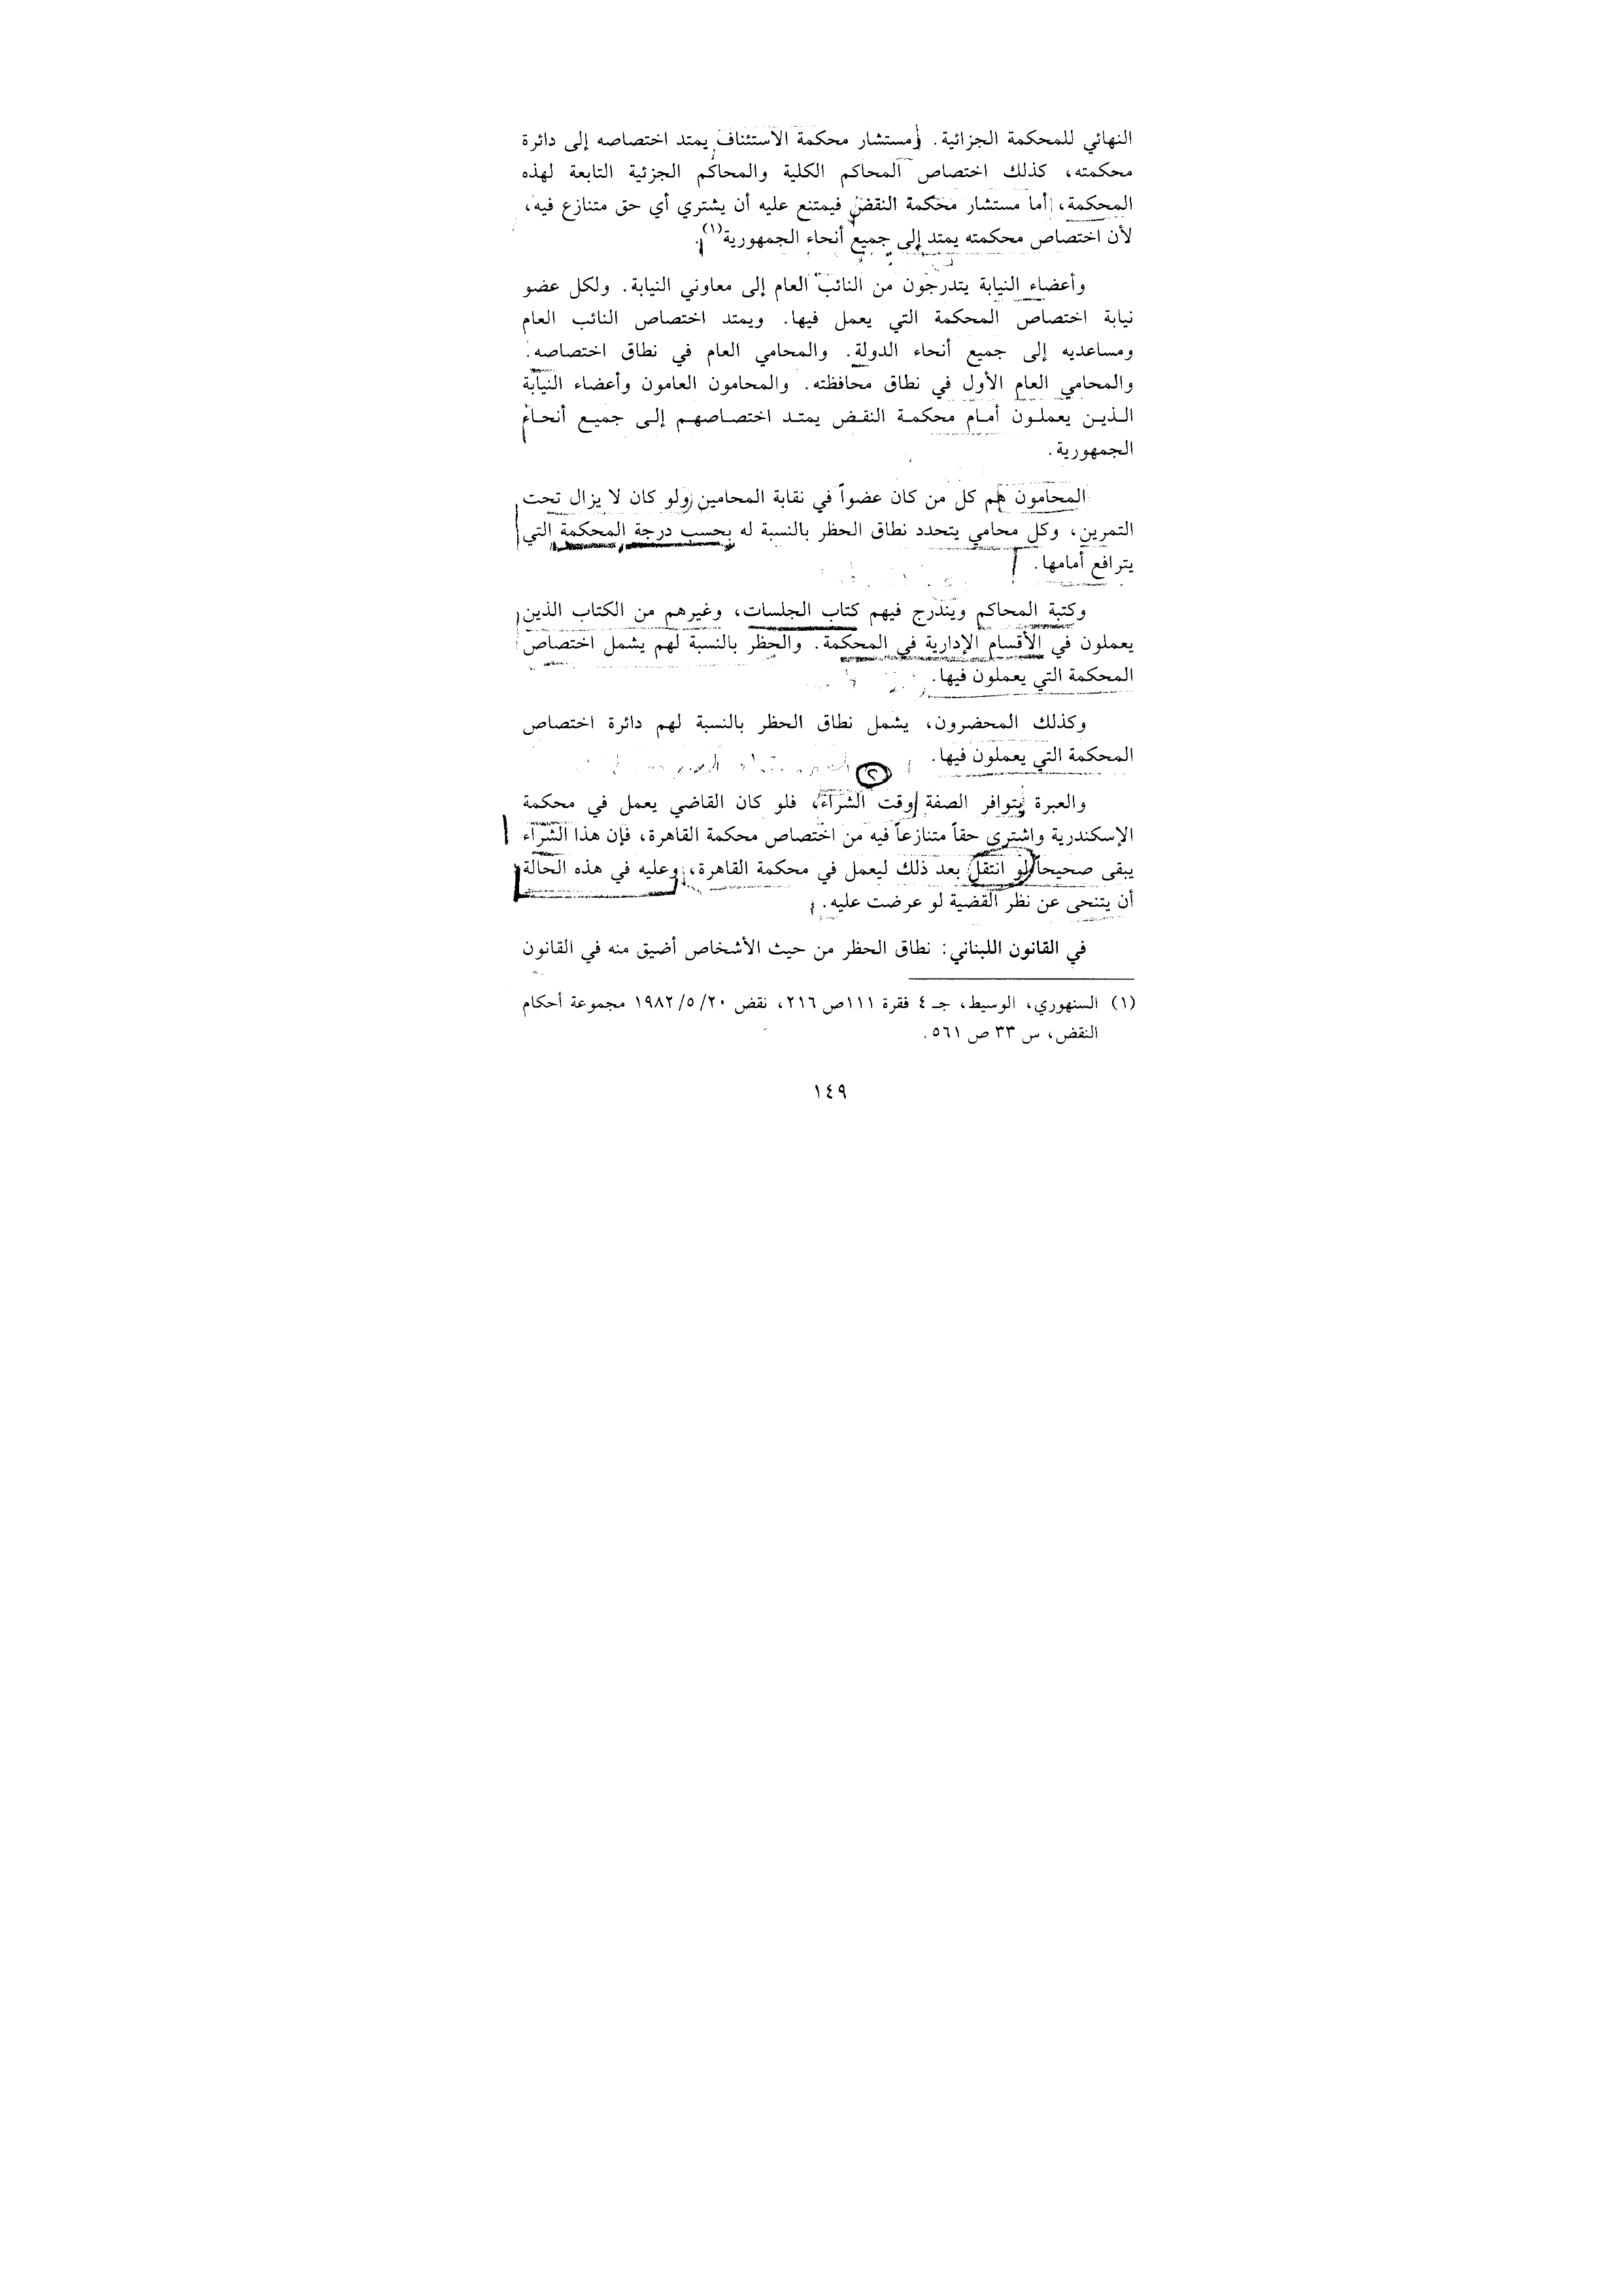 النهائي للمحكمة الجزائية. ومستشار محكمة الاستئناف يمتد اختصاصه إلى دائرة
محكمته، كذلك اختصاص المحاكم الكلية والمحاكم الجزئية التابعة لهذه
المحكمة، أما مستشار محكمة النقض فيمتنع عليه أن يشتري أي حق متنازع فيه،
لأن اختصاص محكمته يمتد إلى جميع أنحاء الجمهورية(١).
وأعضاء النيابة يتدرجون من النائب العام إلى معاوني النيابة. ولكل عضو
نيابة اختصاص المحكمة التي يعمل فيها. ويمتد اختصاص النائب العام
ومساعديه إلى جميع أنحاء الدولة. والمحامي العام في نطاق اختصاصه.
والمحامي العام الأول في نطاق محافظته. والمحامون العامون وأعضاء النيابة
الذين يعملون أمام محكمة النقض يمتد اختصاصهم إلى جميع أنحاء
الجمهورية.
المحامون هم كل من كان عضواً في نقابة المحامين ولو كان لا يزال تحت
التمرين، وكل محامي يتحدد نطاق الحظر بالنسبة له بحسب درجة المحكمة التي
يترافع أمامها.
وكتبة المحاكم ويندرج فيهم كتاب الجلسات، وغيرهم من الكتاب الذين
يعملون في الأقسام الإدارية في المحكمة. والحظر بالنسبة لهم يشمل اختصاص
المحكمة التي يعملون فيها.
وكذلك المحضرون، يشمل نطاق الحظر بالنسبة لهم دائرة اختصاص
المحكمة التي يعملون فيها.
٢
والعبرة بتوافر الصفة وقت الشراء، فلو كان القاضي يعمل في محكمة
الإسكندرية واشترى حقاً متنازعاً فيه من اختصاص محكمة القاهرة، فإن هذا الشراء
يبقى صحيحاً لو انتقل بعد ذلك ليعمل في محكمة القاهرة، وعليه في هذه الحالة
أن يتنحى عن نظر القضية لو عرضت عليه.
في القانون اللبناني: نطاق الحظر من حيث الأشخاص أضيق منه في القانون
(١) السنهوري، الوسيط، جـ ٤ فقرة ١١١ص ٢١٦، نقض ٢٠/ ٥/ ١٩٨٢ مجموعة أحكام
النقض، س ٣٣ ص ٥٦١.
١٤٩